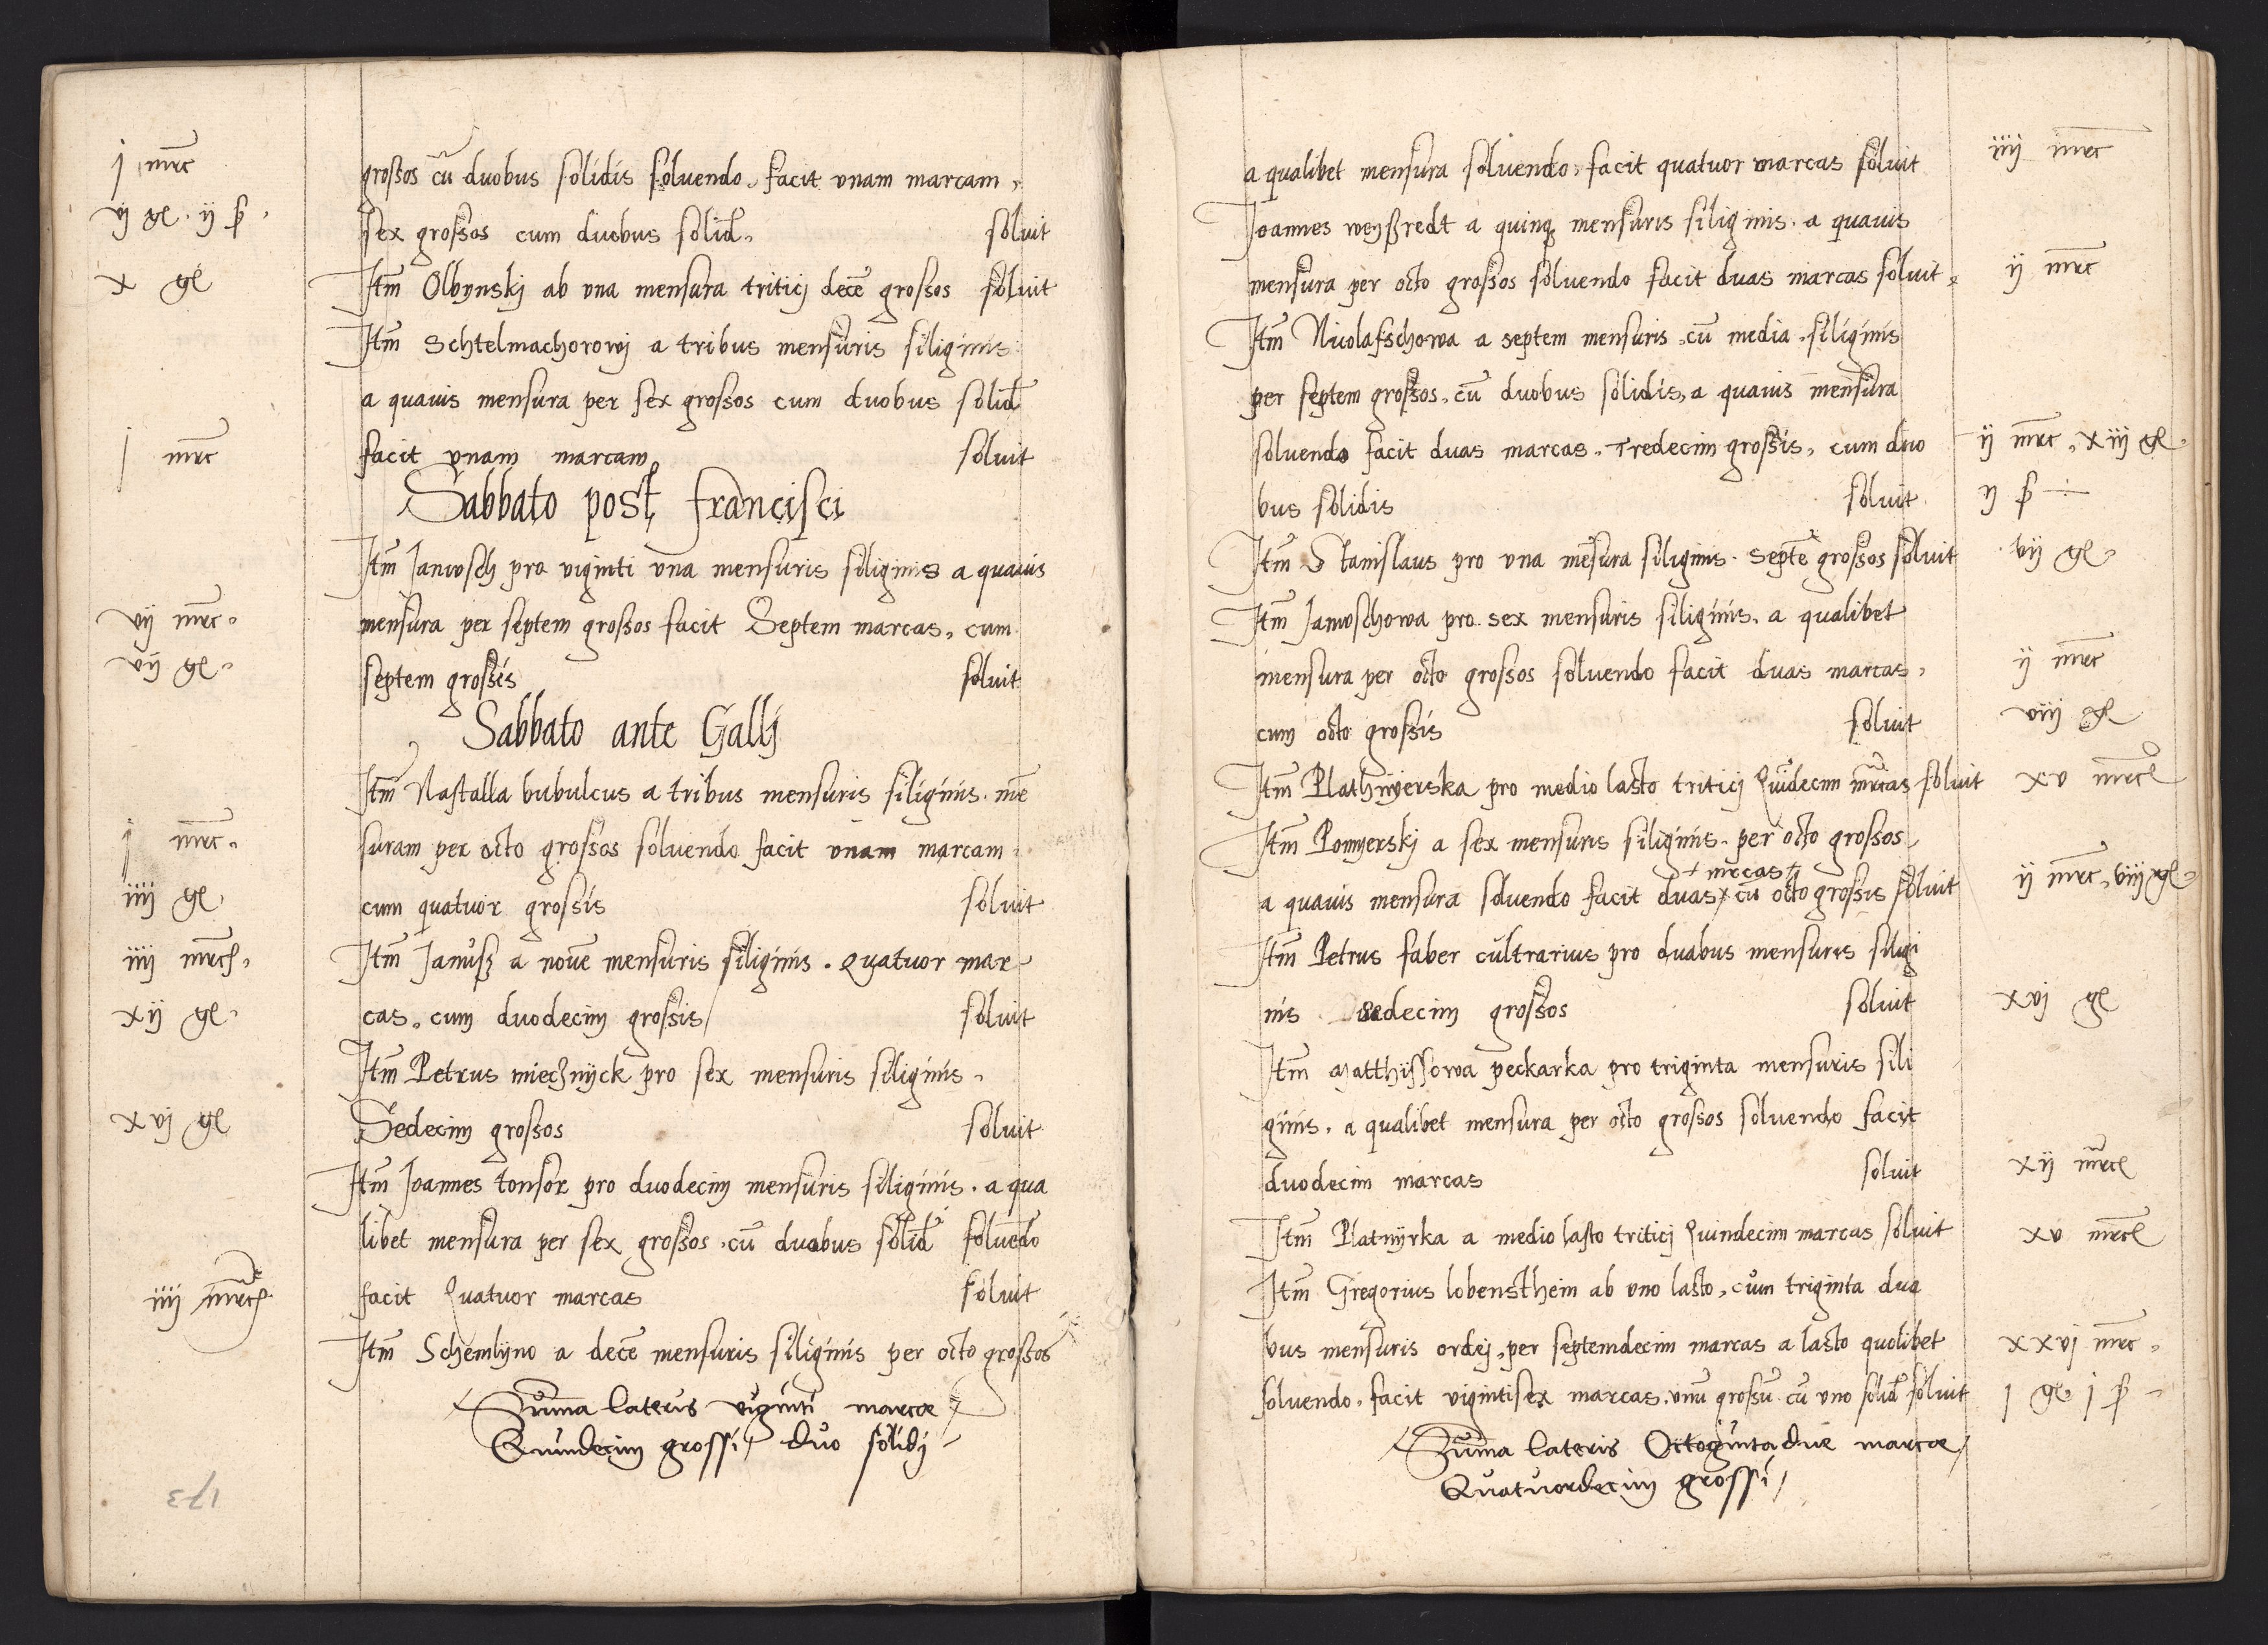 j mrc
grossos cū duobus solidis soluendo, facit vnam marcam,
vj gl. ij ß.
sex grossos cum duobus solid. soluit
x gl
Itm Olbynskj ab vna mensura triticj decē grossos soluit
Itm Schtelmachorowj a tribus mensuris siliginis
a quauis mensura per sex grossos cum duobus solid
j mrc
facit vnam marcam soluit
Sabbato post francisci
Itm Janusch pro viginti vna mensuris siliginis a quauis
vij mrc.
mensura per septem grossos facit Septem marcas, cum
vij gl.
septem grossis soluit
Sabbato ante Gallj
Itm Nastalla bubulcus a tribus mensuris siliginis. mē
j mrc.
suram per octo grossos soluendo facit vnam marcam
iiij gl
cum quatuor grossis soluit
iiij mrc.
Itm Janusz a nouē mensuris siliginis. Quatuor mar
xij gl.
cas, cum duodecim grossis soluit
Itm Petrus miecknyck pro sex mensuris siliginis.
xvj gl
Sedecim grossos soluit
Itm Joannes tonsor pro duodecim mensuris siliginis. a qua
libet mensura per sex grossos, cū duobus solid soluēdo
iiij mrc.
facit Quatuor marcas soluit
Itm Schemlyno a decē mensuris siliginis per octo grossos
Suma lateris viginti marcæ
Quindecim grossi, duo solidj
173
a qualibet mensura soluendo, facit quatuor marcas soluit
iiij mrc
Joannes weyßredt a quinq mensuris siliginis. a quauis
mensura per octo grossos soluendo facit duas marcas soluit.
ij mrc
Itm Nicolasschowa a septem mensuris, cū media, siliginis
per septem grossos, cū duobus solidis, a quauis mensura
soluendo facit duas marcas, Tredecim grossis, cum duo
ij mrc, xiij gl.
bus solidis soluit
ij ß
Itm Stanislaus pro vna mēsura siliginis. septē grossos soluit
vij gl.
Itm Januschowa pro sex mensuris siliginis, a qualibet
mensura per octo grossos soluendo facit duas marcas,
ij mrc
cum octo grossis soluit
viij gl
Itm Plathnyerska pro medio lasto triticj Quīdecim mrcas soluit
xv mrc
Itm Pomyerskj a sex mensuris siliginis. per octo grossos
+ mrcas +
a quauis mensura soluendo facit duas + cū octo grossis soluit
ij mrc, viij gl.
Itm Petrus faber cultrarius pro duabus mensuris siligi
nis sedecim grossos soluit
xvj gl
Itm Matthissowa peckarka pro triginta mensuris sili
ginis, a qualibet mensura per octo grossos soluendo facit
duodecim marcas soluit
xij mrc
Itm Platnyrka a medio lasto triticj Quindecim marcas soluit
xv mrc
Itm Gregorius lobensthein ab vno lasto, cum triginta dua
bus mensuris ordej, per septemdecim marcas a lasto quolibet
xxvj mrc.
soluendo, facit vigintisex marcas, vnū grossū cū vno solid soluit
j gl j ß
Suma lateris Octogintaduæ marcæ
Quatuordecim grossi